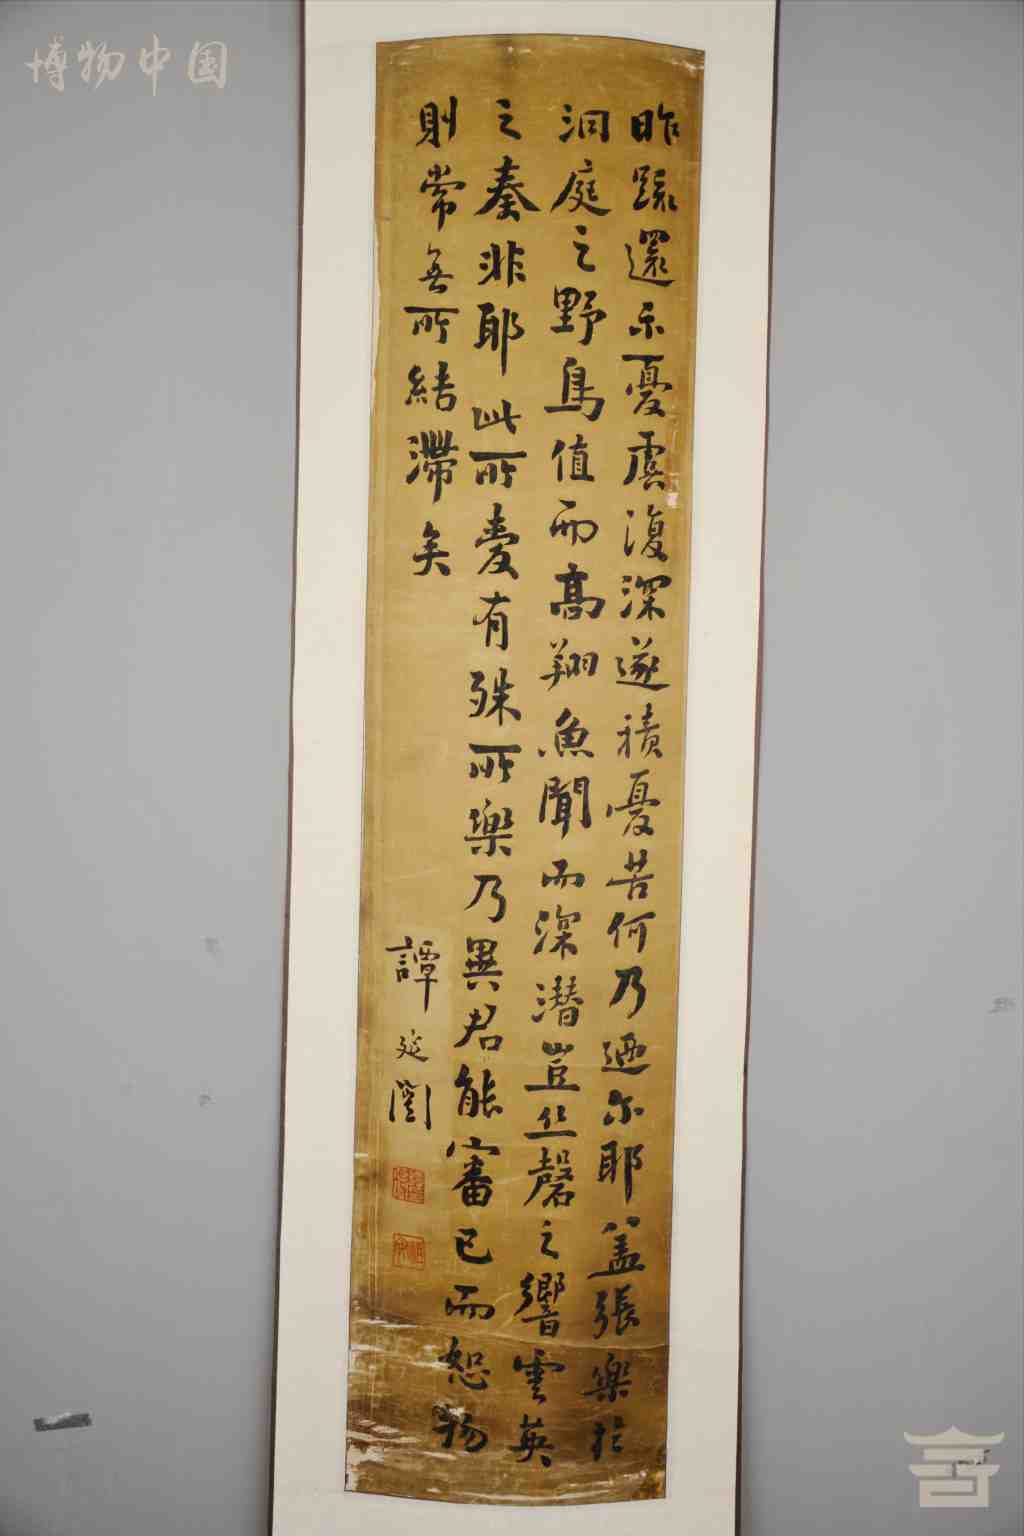 博物中国
昨疏還示憂虞復深遂積憂苦何乃迺尔耶盖張樂於
洞庭之野鳥值而高翔魚聞而深潛豈丝磬之響雲英
之奏非耶此所愛有殊所樂乃異君能審己而恕物
則常無所結滯矣
譚延闓